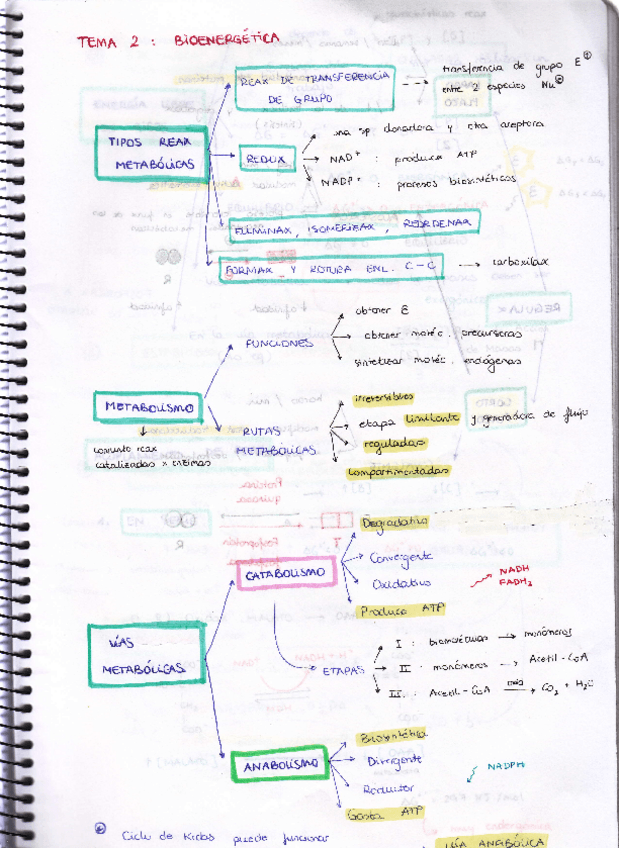 TEMA 2 : BIOENERGÉTICA
REAX DE TRANSFERENCIA
DE GRUPO
transferencia de grupo E⊕
entre 2 especies Nu⊖
TIPOS REAX
METABÓLICAS
REDUX
una sp donadora y otra aceptora
NAD⁺ : producir ATP
NADP⁺ : procesos biosintéticos
ELIMINAX, ISOMERIZAX, REORDENAX
FORMAX Y ROTURA ENL. C-C
carboxilax
FUNCIONES
obtener E
obtener moléc. precursoras
sintetizar moléc. endógenas
METABOLISMO
conjunto reax
catalizadas x enzimas
RUTAS
METABÓLICAS
irreversibles
etapa limitante y generadora de flujo
reguladas
compartimentadas
VÍAS
METABÓLICAS
CATABOLISMO
Degradativo
Convergente
Oxidativo
NADH
FADH₂
Produce ATP
ETAPAS
I : biomoléculas → monómeros
II : monómeros → Acetil-CoA
III : Acetil-CoA → CO₂ + H₂O
ANABOLISMO
Biosintético
Divergente
Reductor
NADPH
Gasta ATP
Ciclo de Krebs puede funcionar
VÍA ANABÓLICA